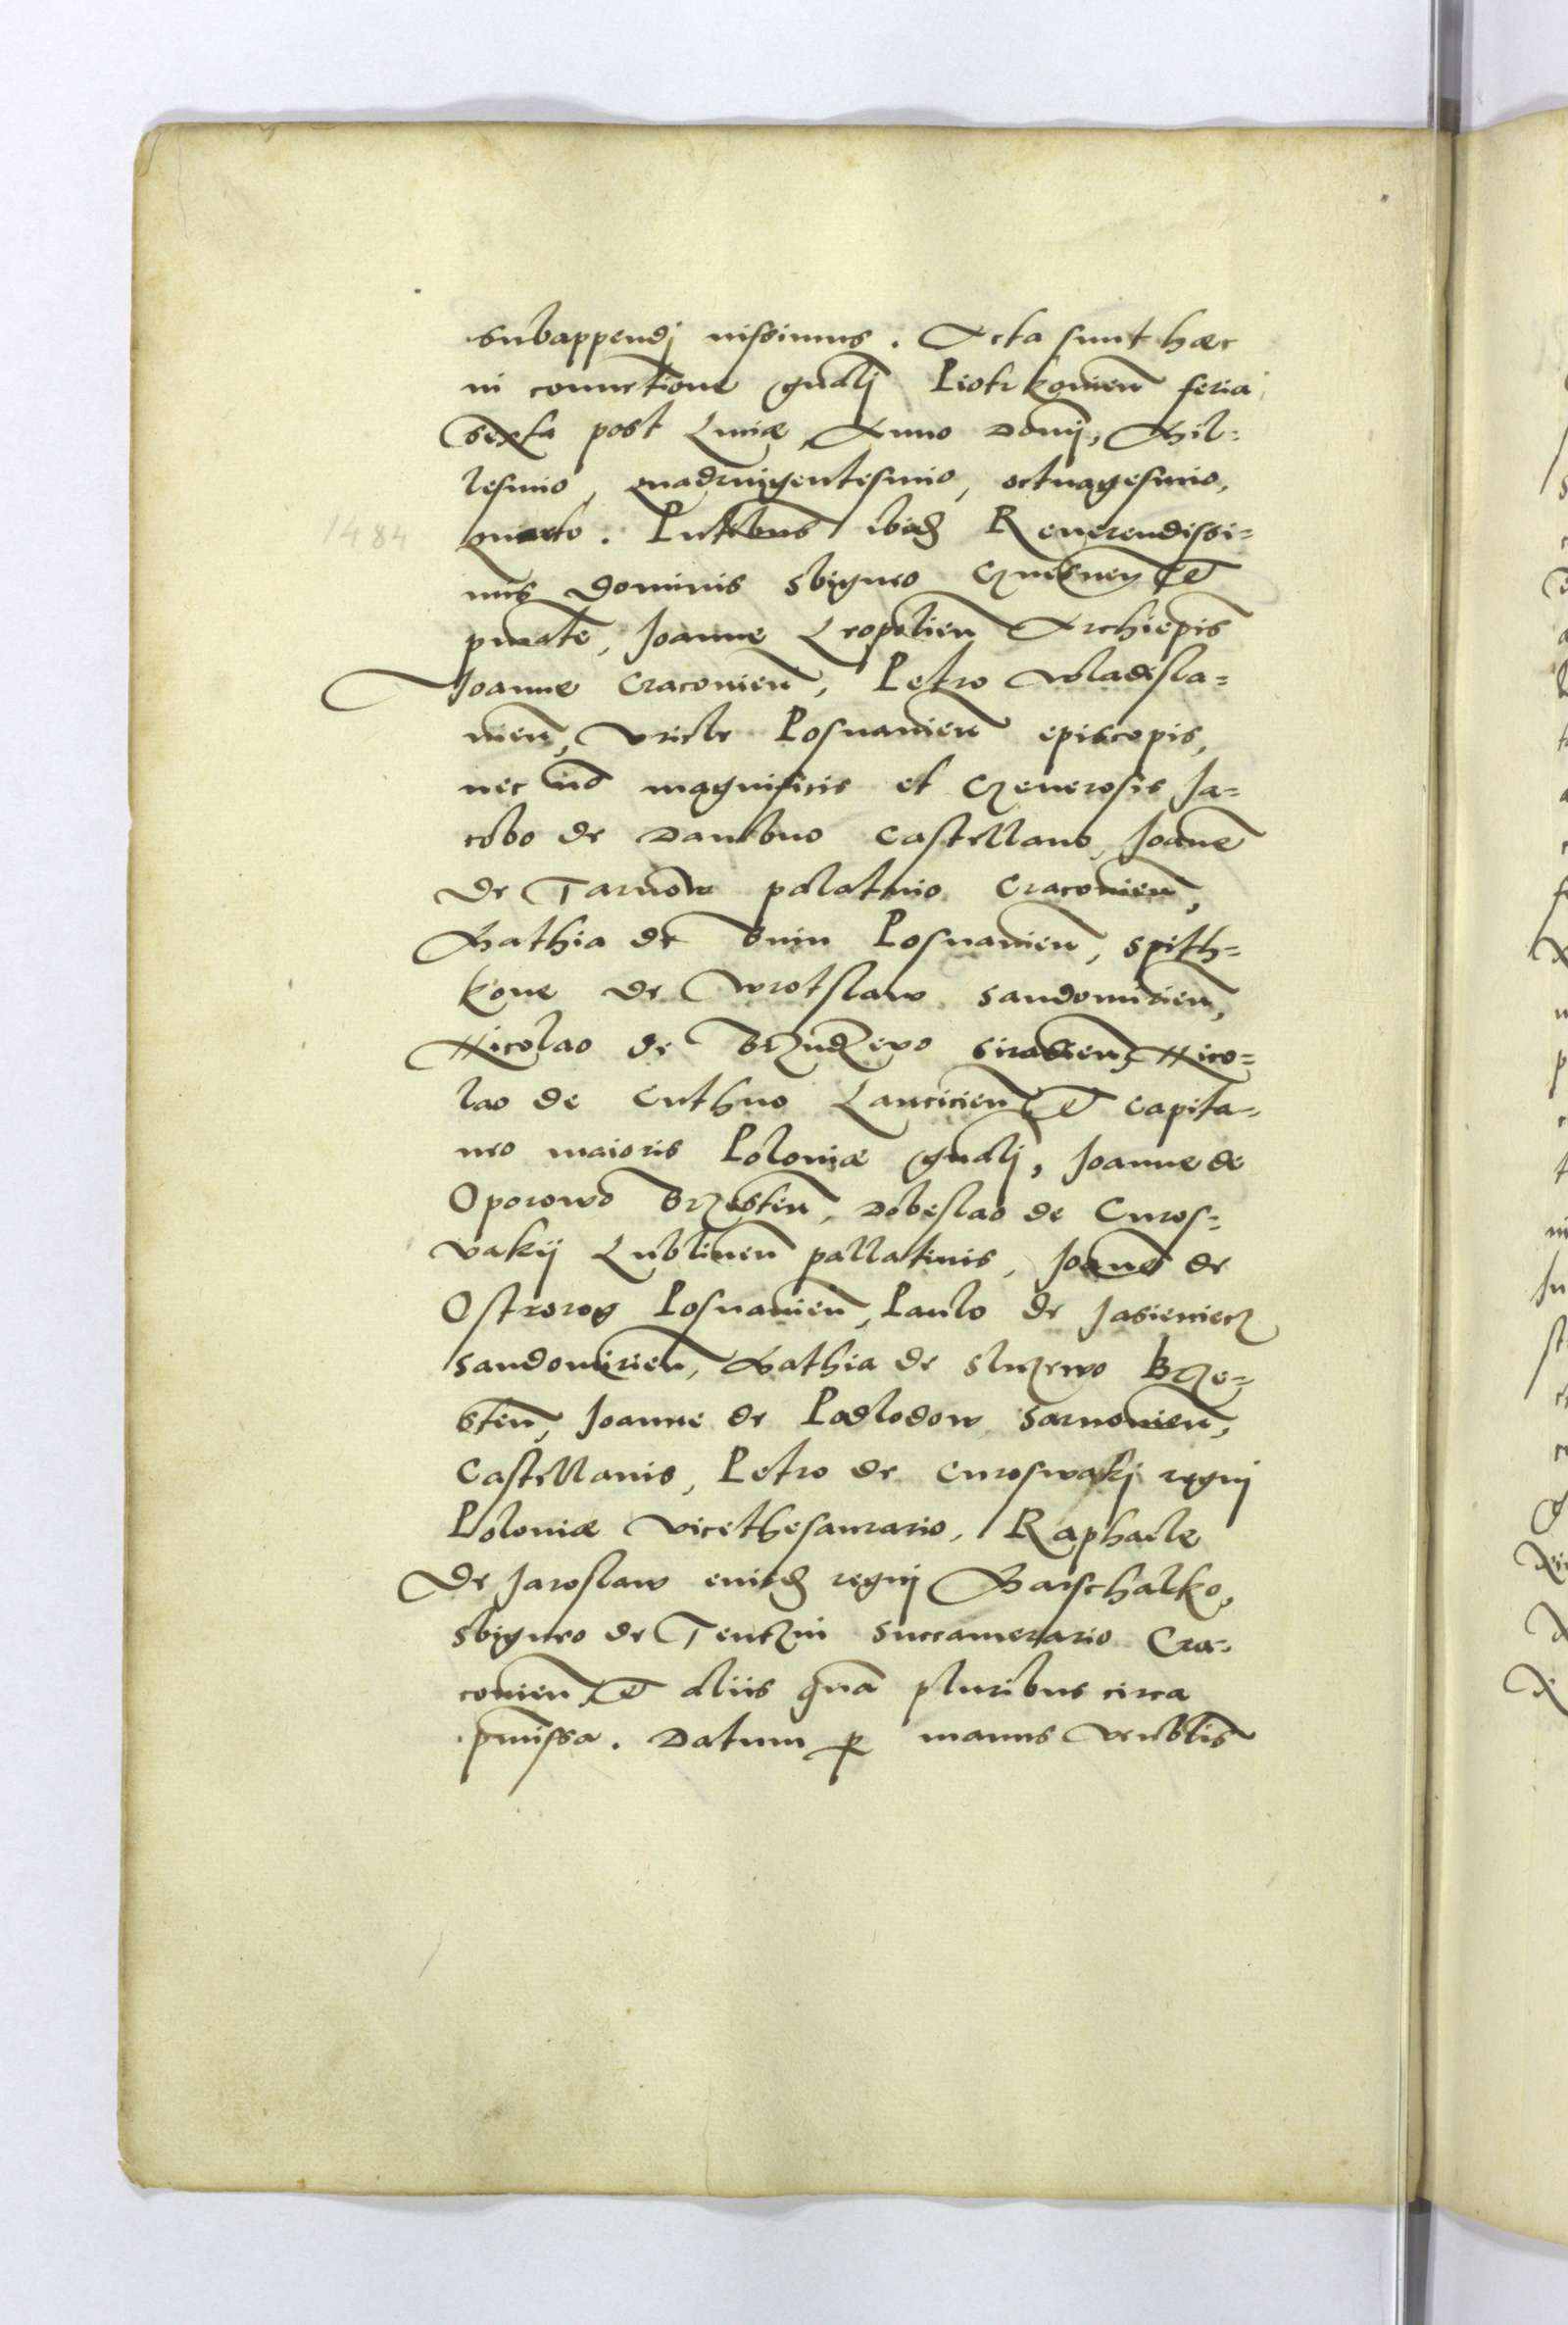 subappendj iussimus. Acta sunt haec
in conuctione gn̄alj Piotrkouien̄ feria
sexta post Luciæ Anno Domj, Mil=
lesimo, quadringentesimo, octuagesimo,
1484 quarto. Pn̄tibus ibidē Reuerendissi=
mis dominis Sbigneo Gznesnen̄ et
pmate, Joanne Leopolien̄ Archiepis
Joanne Cracouien̄, Petro Wladisla=
uien̄, Vriele Posnanien̄ episcopis,
nec nō magnificis et Gzenerosis Ja=
cobo de Dambno Castellano, Joanē
de Tarnow palatino Cracouien̄,
Mathia de Bnin Posnanien̄, Spith=
kone de Wrotslaw Sandomirien̄,
Nicolao de Brzudzewo Siradien̄, Nico=
lao de Cuthno Lancicien̄ et Capita=
neo maioris Poloniæ gn̄alj, Joanne de
Oporowo Brzesten̄, Dobeslao de Curos=
vakij Lublinen̄ pallatinis, Joanē de
Ostrorog Posnanien̄, Paulo de Jasieniecz
Sandomirien̄, Mathia de Sluzewo Brze=
sten̄, Joanne de Podlodow Sarnouien̄,
Castellanis, Petro de Curoswakj regnj
Poloniæ Vicethesaurario, Raphaele
de Jaroslaw eiusdē regnj Marschalko,
Sbigneo de Tenczin Succamerario Cra=
couien̄ et aliis quā pluribus circa
pmissa. Datum p manus Venblis